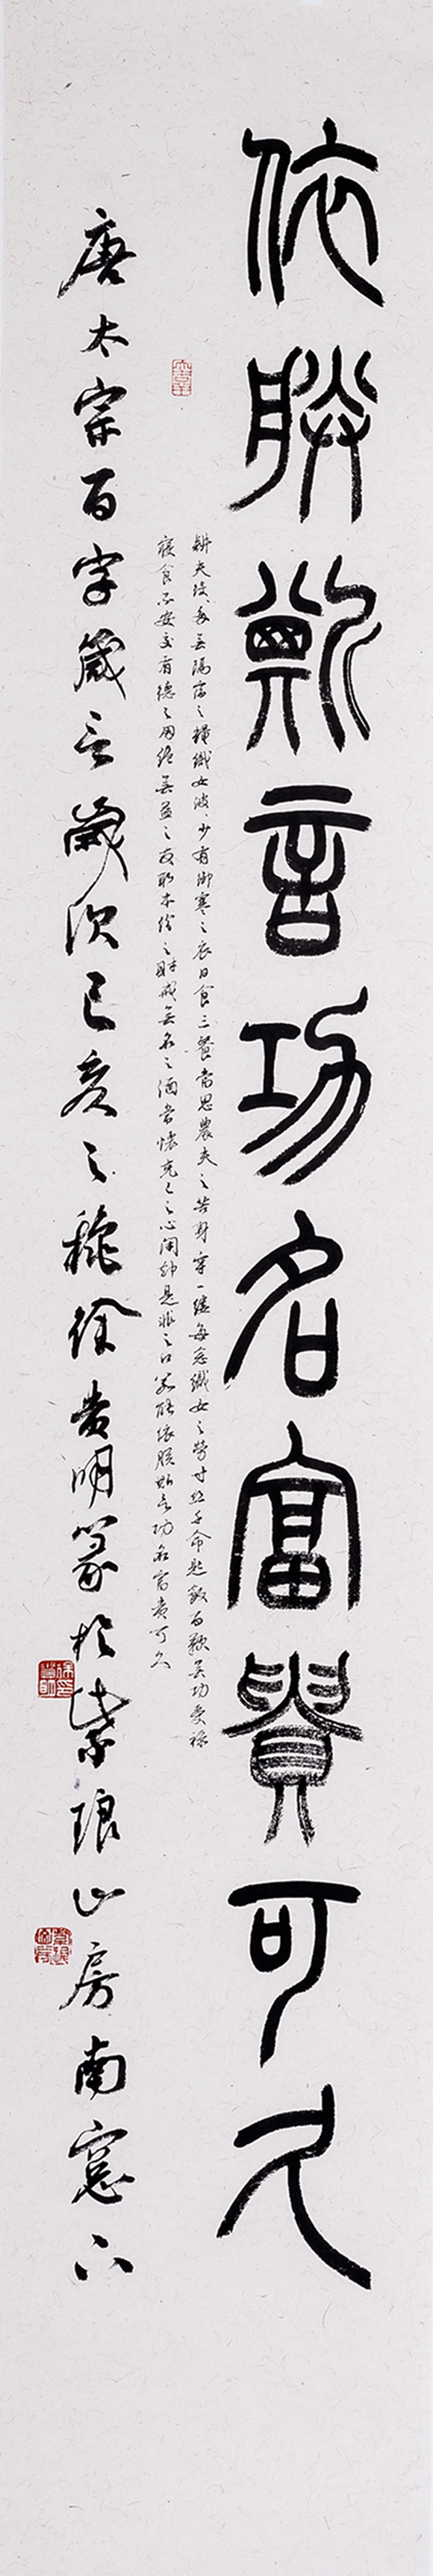 依朕斯言功名富貴可久
耕夫役、多無隔宿之糧織女波、少有御寒之衣日食三餐當思農夫之苦身穿一縷每念織女之勞寸絲千命匙飯百鞭無功受祿
寢食不安交有德之朋絕無益之友取本份之財戒無名之酒常懷克己之心閉卻是非之口若能依朕斯言功名富貴可久
唐太宗百字箴言歲次己亥之穐徐貴明篆於紫琅山房南窻下